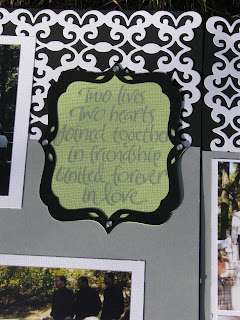 Two lives
Two hearts
Joined together
in friendship
United forever
in love.